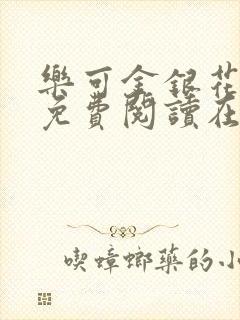 樂可金銀花
免費閱讀在
喫蟑螂藥的小